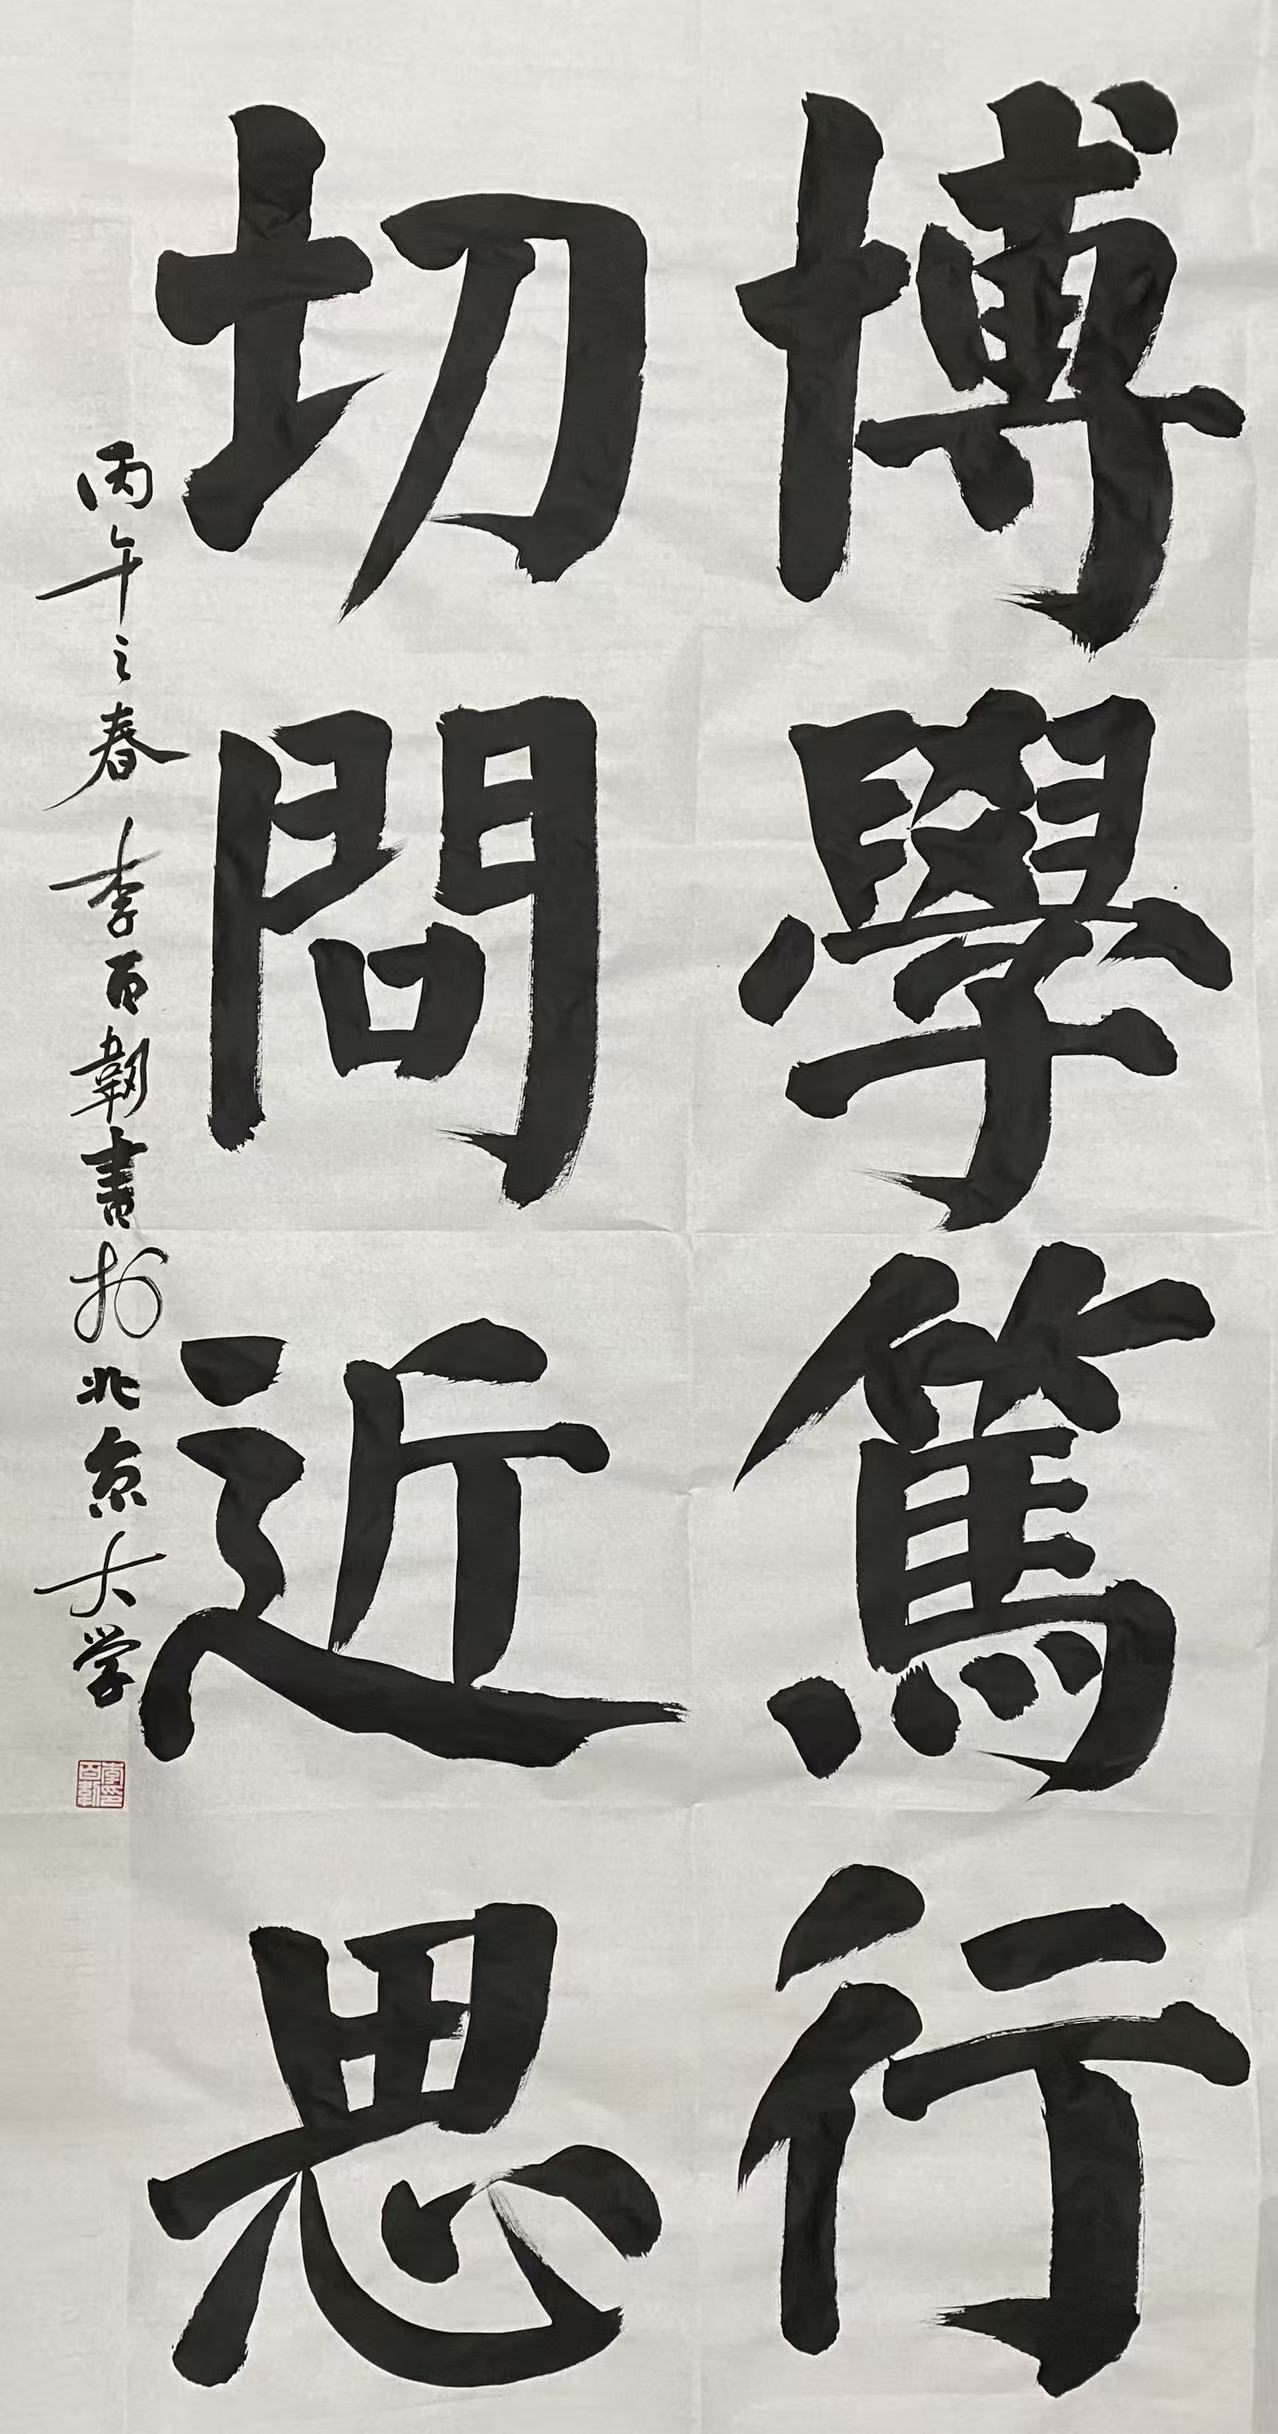 博學篤行
切問近思
丙午之春李百韌書於北京大学